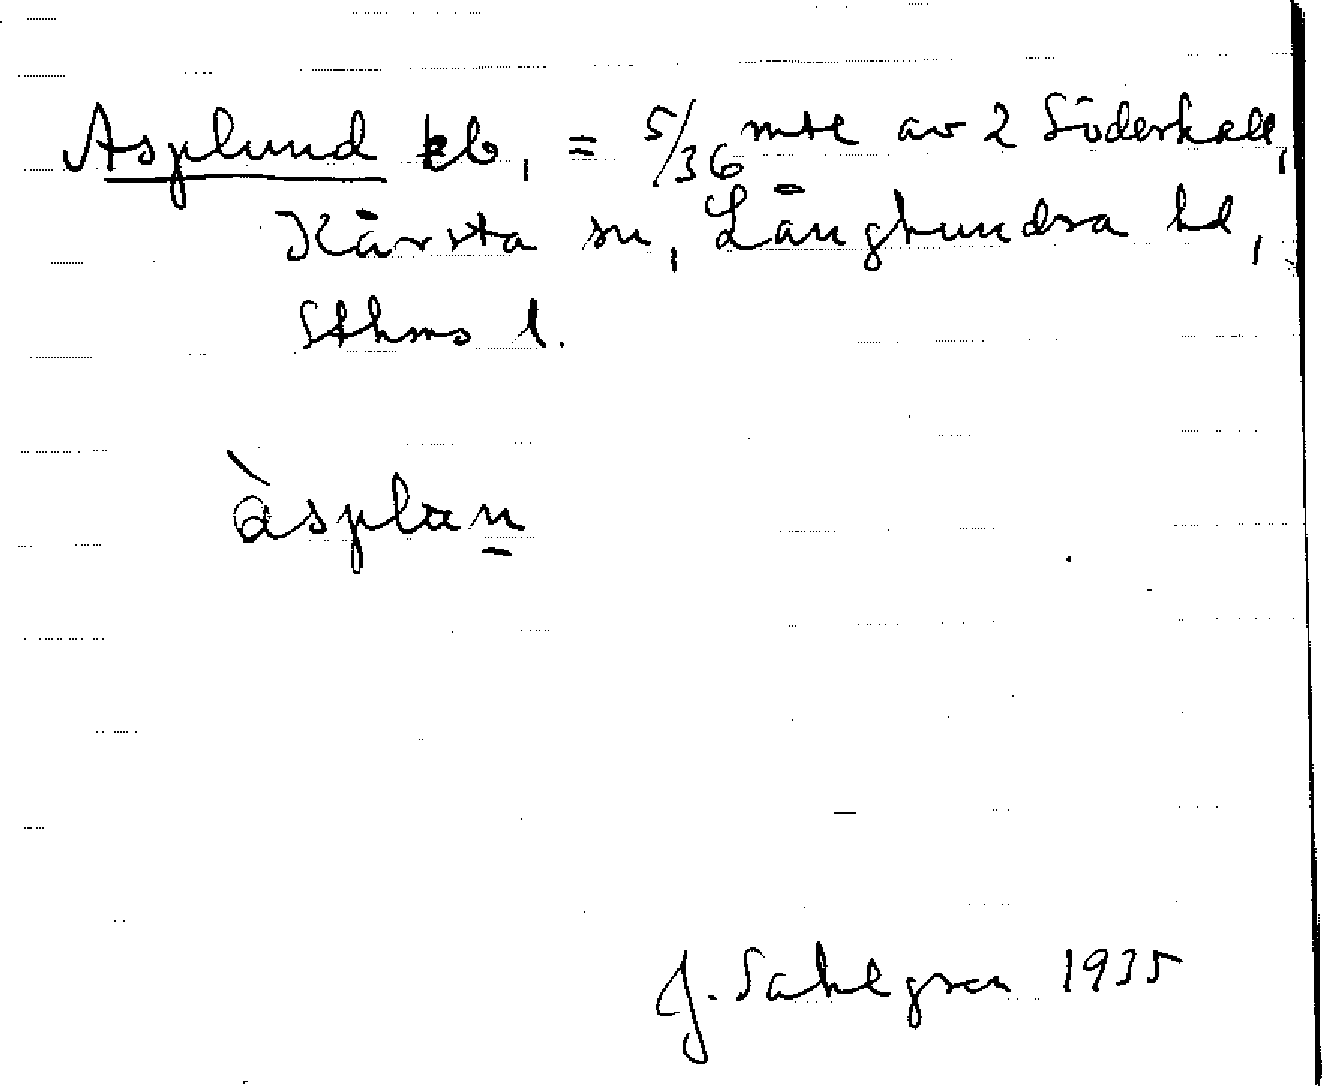 Asplund lb, = 5/36 mtl av 2 Söderhall,
Kårsta sn, Långhundra hd,
Sthms l.
àsplan
J. Sahlgren 1935